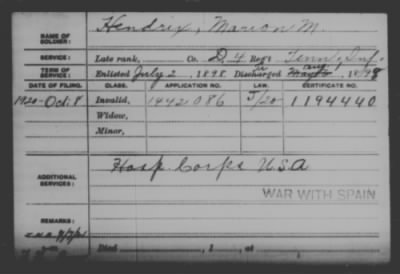 NAME OF SOLDIER: Hendrix, Marion M.
SERVICE: Late rank, Co. D, 4 Reg't Tenn. Inf.
TERM OF SERVICE: Enlisted July 2, 1898. Discharged Aug 1898
DATE OF FILING. CLASS. APPLICATION NO. LAW. CERTIFICATE NO.
1920-Oct. 8 Invalid, 1442086 J/20 1194440
Widow,
Minor,
ADDITIONAL SERVICES: Hosp. Corps U.S.A
WAR WITH SPAIN
REMARKS:
Died , 1 , at